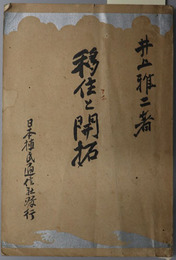 井上雅二著
移住と開拓
日本植民通信社發行